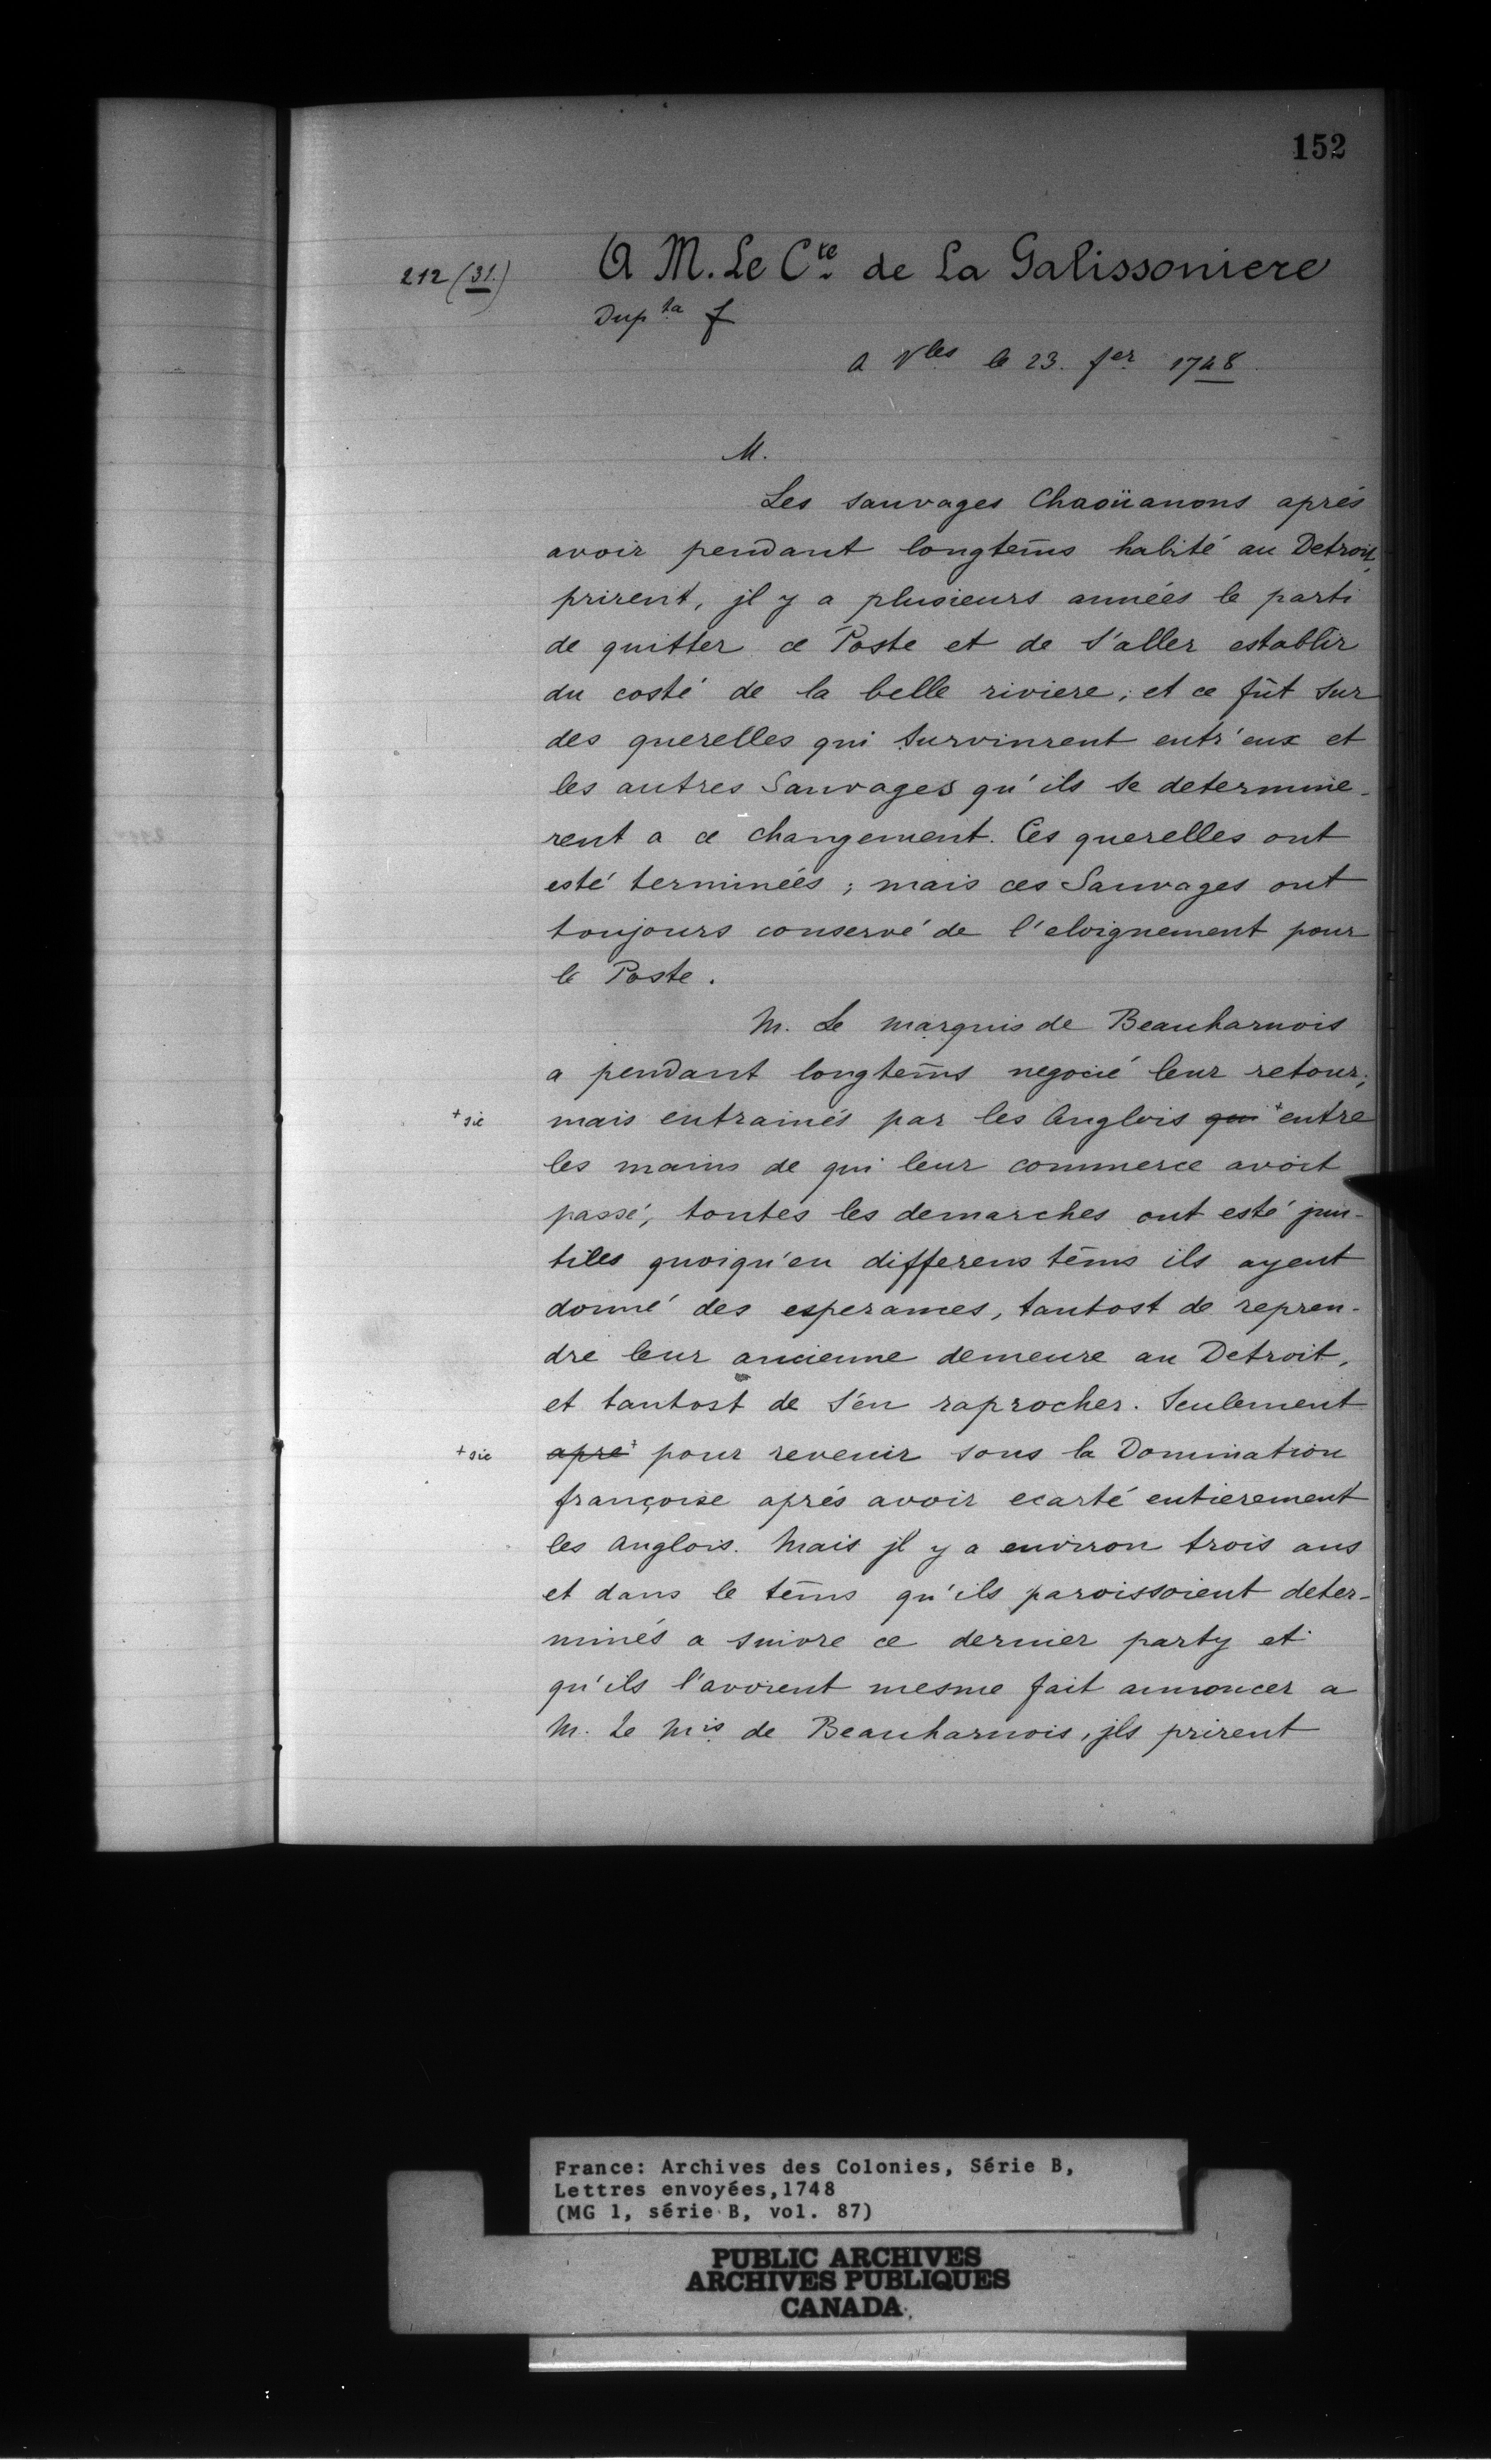 152
212 (31.)
A M. Le Cte de La Galissoniere
Dupta f
A Vles le 23. fer 1748
M.
Les sauvages Chaoüanons aprés
avoir pendant longtem̃s habité au Detroit,
prirent, jl y a plusieurs années le parti
de quitter ce Poste et de s'aller establir
du costé de la belle riviere; et ce fût sur
des querelles qui survinrent entr'eux et
les autres Sauvages qu'ils se determine-
rent a ce changement. Ces querelles ont
esté terminées; mais ces Sauvages ont
toujours conservé de l'eloignement pour
le Poste.
M. Le marquis de Beauharnois
a pendant longtem̃s negocié leur retour;
+ sic
mais entrainés par les Anglois qui + entre
les mains de qui leur commerce avoit
passé, toutes les demarches ont esté jnu-
tiles quoiqu'en differens tem̃s ils ayent
donné des esperances, tantost de repren-
dre leur ancienne demeure au Detroit,
et tantost de s'en raprocher. Seulement
+ sic
apre + pour revenir sous la Domination
françoise aprés avoir ecarté entierement
les anglois. Mais jl y a environ trois ans
et dans le tem̃s qu'ils paroissoient deter-
minés a suivre ce dernier party et
qu'ils l'avoient mesme fait annoncer a
M. Le Mis de Beauharnois, jls prirent
France: Archives des Colonies, Série B,
Lettres envoyées,1748
(MG 1, série B, vol. 87)
PUBLIC ARCHIVES
ARCHIVES PUBLIQUES
CANADA